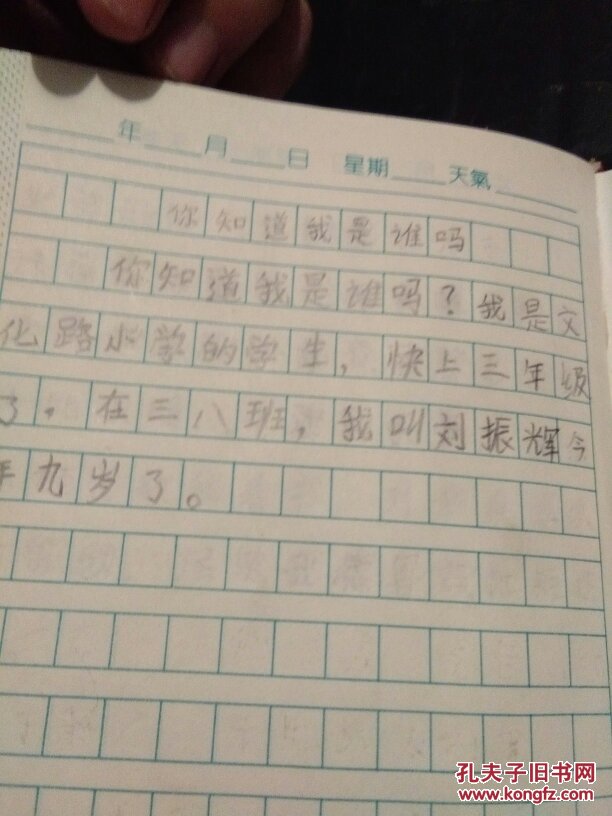 年 月 日 星期 天氣
你知道我是谁吗
你知道我是谁吗？我是文
化路小学的学生，快上三年级
了，在三八班，我叫刘振辉今
年九岁了。
孔夫子旧书网
www.kongfz.com